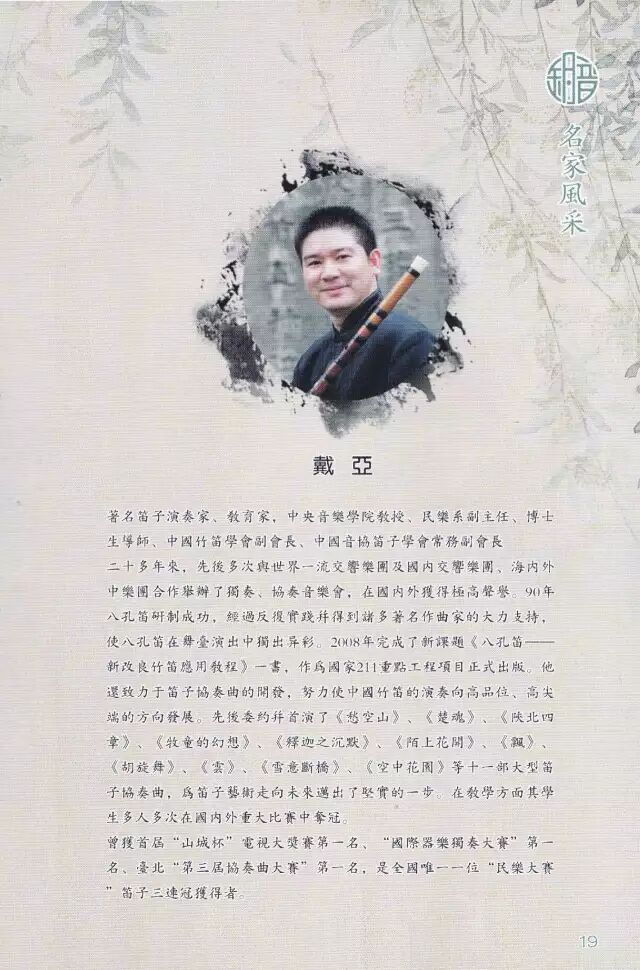 名家風采
戴 亞
著名笛子演奏家、教育家，中央音樂學院教授、民樂系副主任、博士
生導師、中國竹笛學會副會長、中國音協笛子學會常務副會長
二十多年來，先後多次與世界一流交響樂團及國內交響樂團、海內外
中樂團合作舉辦了獨奏、協奏音樂會，在國內外獲得極高聲譽。90年
八孔笛研制成功，經過反復實踐并得到諸多著名作曲家的大力支持，
使八孔笛在舞臺演出中獨出异彩。2008年完成了新課題《八孔笛——
新改良竹笛應用教程》一書，作爲國家211重點工程項目正式出版。他
還致力于笛子協奏曲的開發，努力使中國竹笛的演奏向高品位、高尖
端的方向發展。先後委約并首演了《愁空山》、《楚魂》、《陝北四
章》、《牧童的幻想》、《釋迦之沉默》、《陌上花開》、《飄》、
《胡旋舞》、《雲》、《雪意斷橋》、《空中花園》等十一部大型笛
子協奏曲，爲笛子藝術走向未來邁出了堅實的一步。在教學方面其學
生多人多次在國內外重大比賽中奪冠。
曾獲首屆“山城杯”電視大獎賽第一名、“國際器樂獨奏大賽”第一
名、臺北“第三屆協奏曲大賽”第一名，是全國唯一一位“民樂大賽
”笛子三連冠獲得者。
19